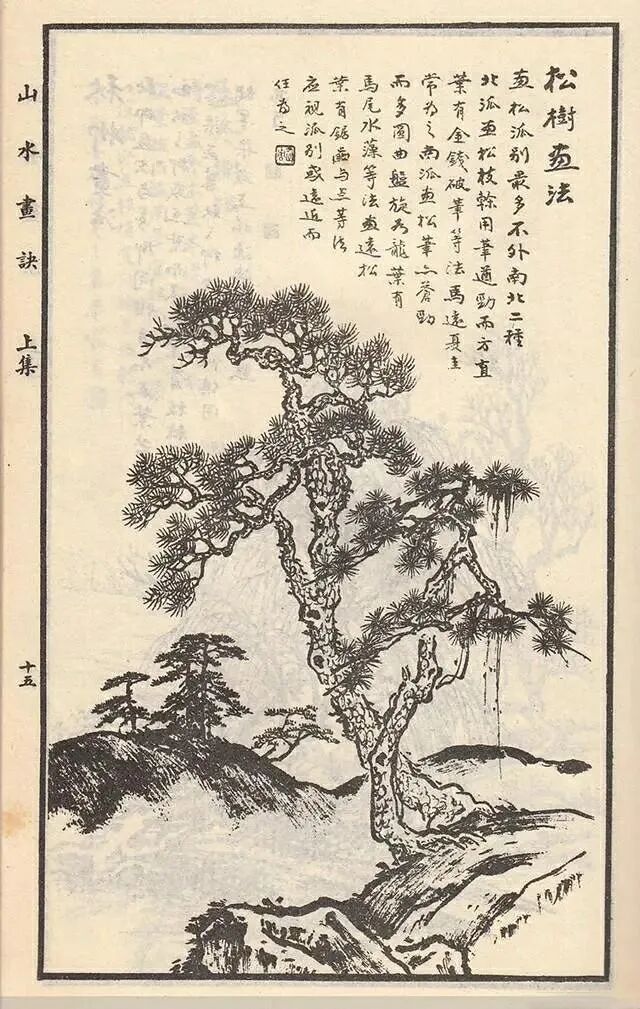 松樹画法
画松派别最多不外南北二種
北派画松枝榦用筆遒勁而方直
葉有金錢破筆等法馬遠夏圭
常为之南派画松筆亦蒼勁
而多圓曲盤旋如龍葉有
馬尾水藻等法画遠松
葉有鋸齒与点等法
应視派别或遠近而
任为之
山水畫訣 上集
十五